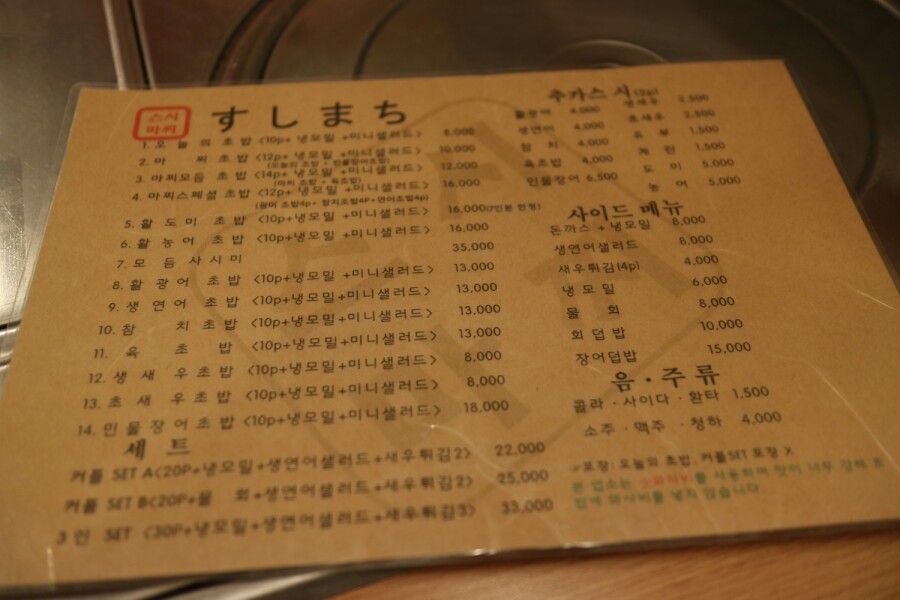 스시
마찌
すしまち
1. 오늘의초밥 <10p+ 냉모밀 +미니샐러드> 8,000
2. 마 찌 초밥 <12p+ 냉모밀 +미니샐러드> 10,000
(오늘의 초밥 + 민물장어초밥)
3. 마찌모듬 초밥 <14p+ 냉모밀 +미니샐러드> 12,000
(마찌 초밥 + 육초밥)
4. 마찌스페셜 초밥 <12p+ 냉모밀 +미니샐러드> 16,000
(광어 초밥4p+ 참치초밥4P+연어초밥4p)
5. 활도미 초밥 <10p+냉모밀 +미니샐러드> 16,000(7인분 한정)
6. 활농어 초밥 <10p+냉모밀 +미니샐러드> 16,000
7. 모듬 사시미 35,000
8. 활광어 초밥 <10p+냉모밀 +미니샐러드> 13,000
9. 생연어 초밥 <10p+냉모밀+미니샐러드> 13,000
10. 참 치초밥 <10p+냉모밀+미니샐러드> 13,000
11. 육 초 밥 <10p+냉모밀+미니샐러드> 13,000
12. 생새우초밥 <10p+냉모밀+미니샐러드> 8,000
13. 초새우초밥 <10p+냉모밀+미니샐러드> 8,000
14. 민물장어초밥 <10p+냉모밀+미니샐러드> 18,000
세트
커플 SET A<20P+냉모밀+생연어샐러드+새우튀김2> 22,000
커플 SET B<20P+물 회+생연어샐러드+새우튀김2> 25,000
3인 SET <30P+냉모밀+생연어샐러드+새우튀김3> 33,000
추가스시(2p)
활광어 4,000 생새우 2,500
생연어 4,000 초새우 2,500
참치 4,000 유부 1,500
육초밥 4,000 계란 1,500
민물장어 6,500 도미 5,000
농어 5,000
사이드 메뉴
돈까스 +냉모밀 8,000
생연어샐러드 8,000
새우튀김(4p) 4,000
냉모밀 6,000
물 회 8,000
회덮밥 10,000
장어덮밥 15,000
음·주류
콜라·사이다·환타 1,500
소주·맥주·청하 4,000
포장: 오늘의 초밥, 커플SET 포장 X
본 업소는 생와사비를 사용하여 맛이 너무 강해 초
밥에 와사비를 넣지 않습니다